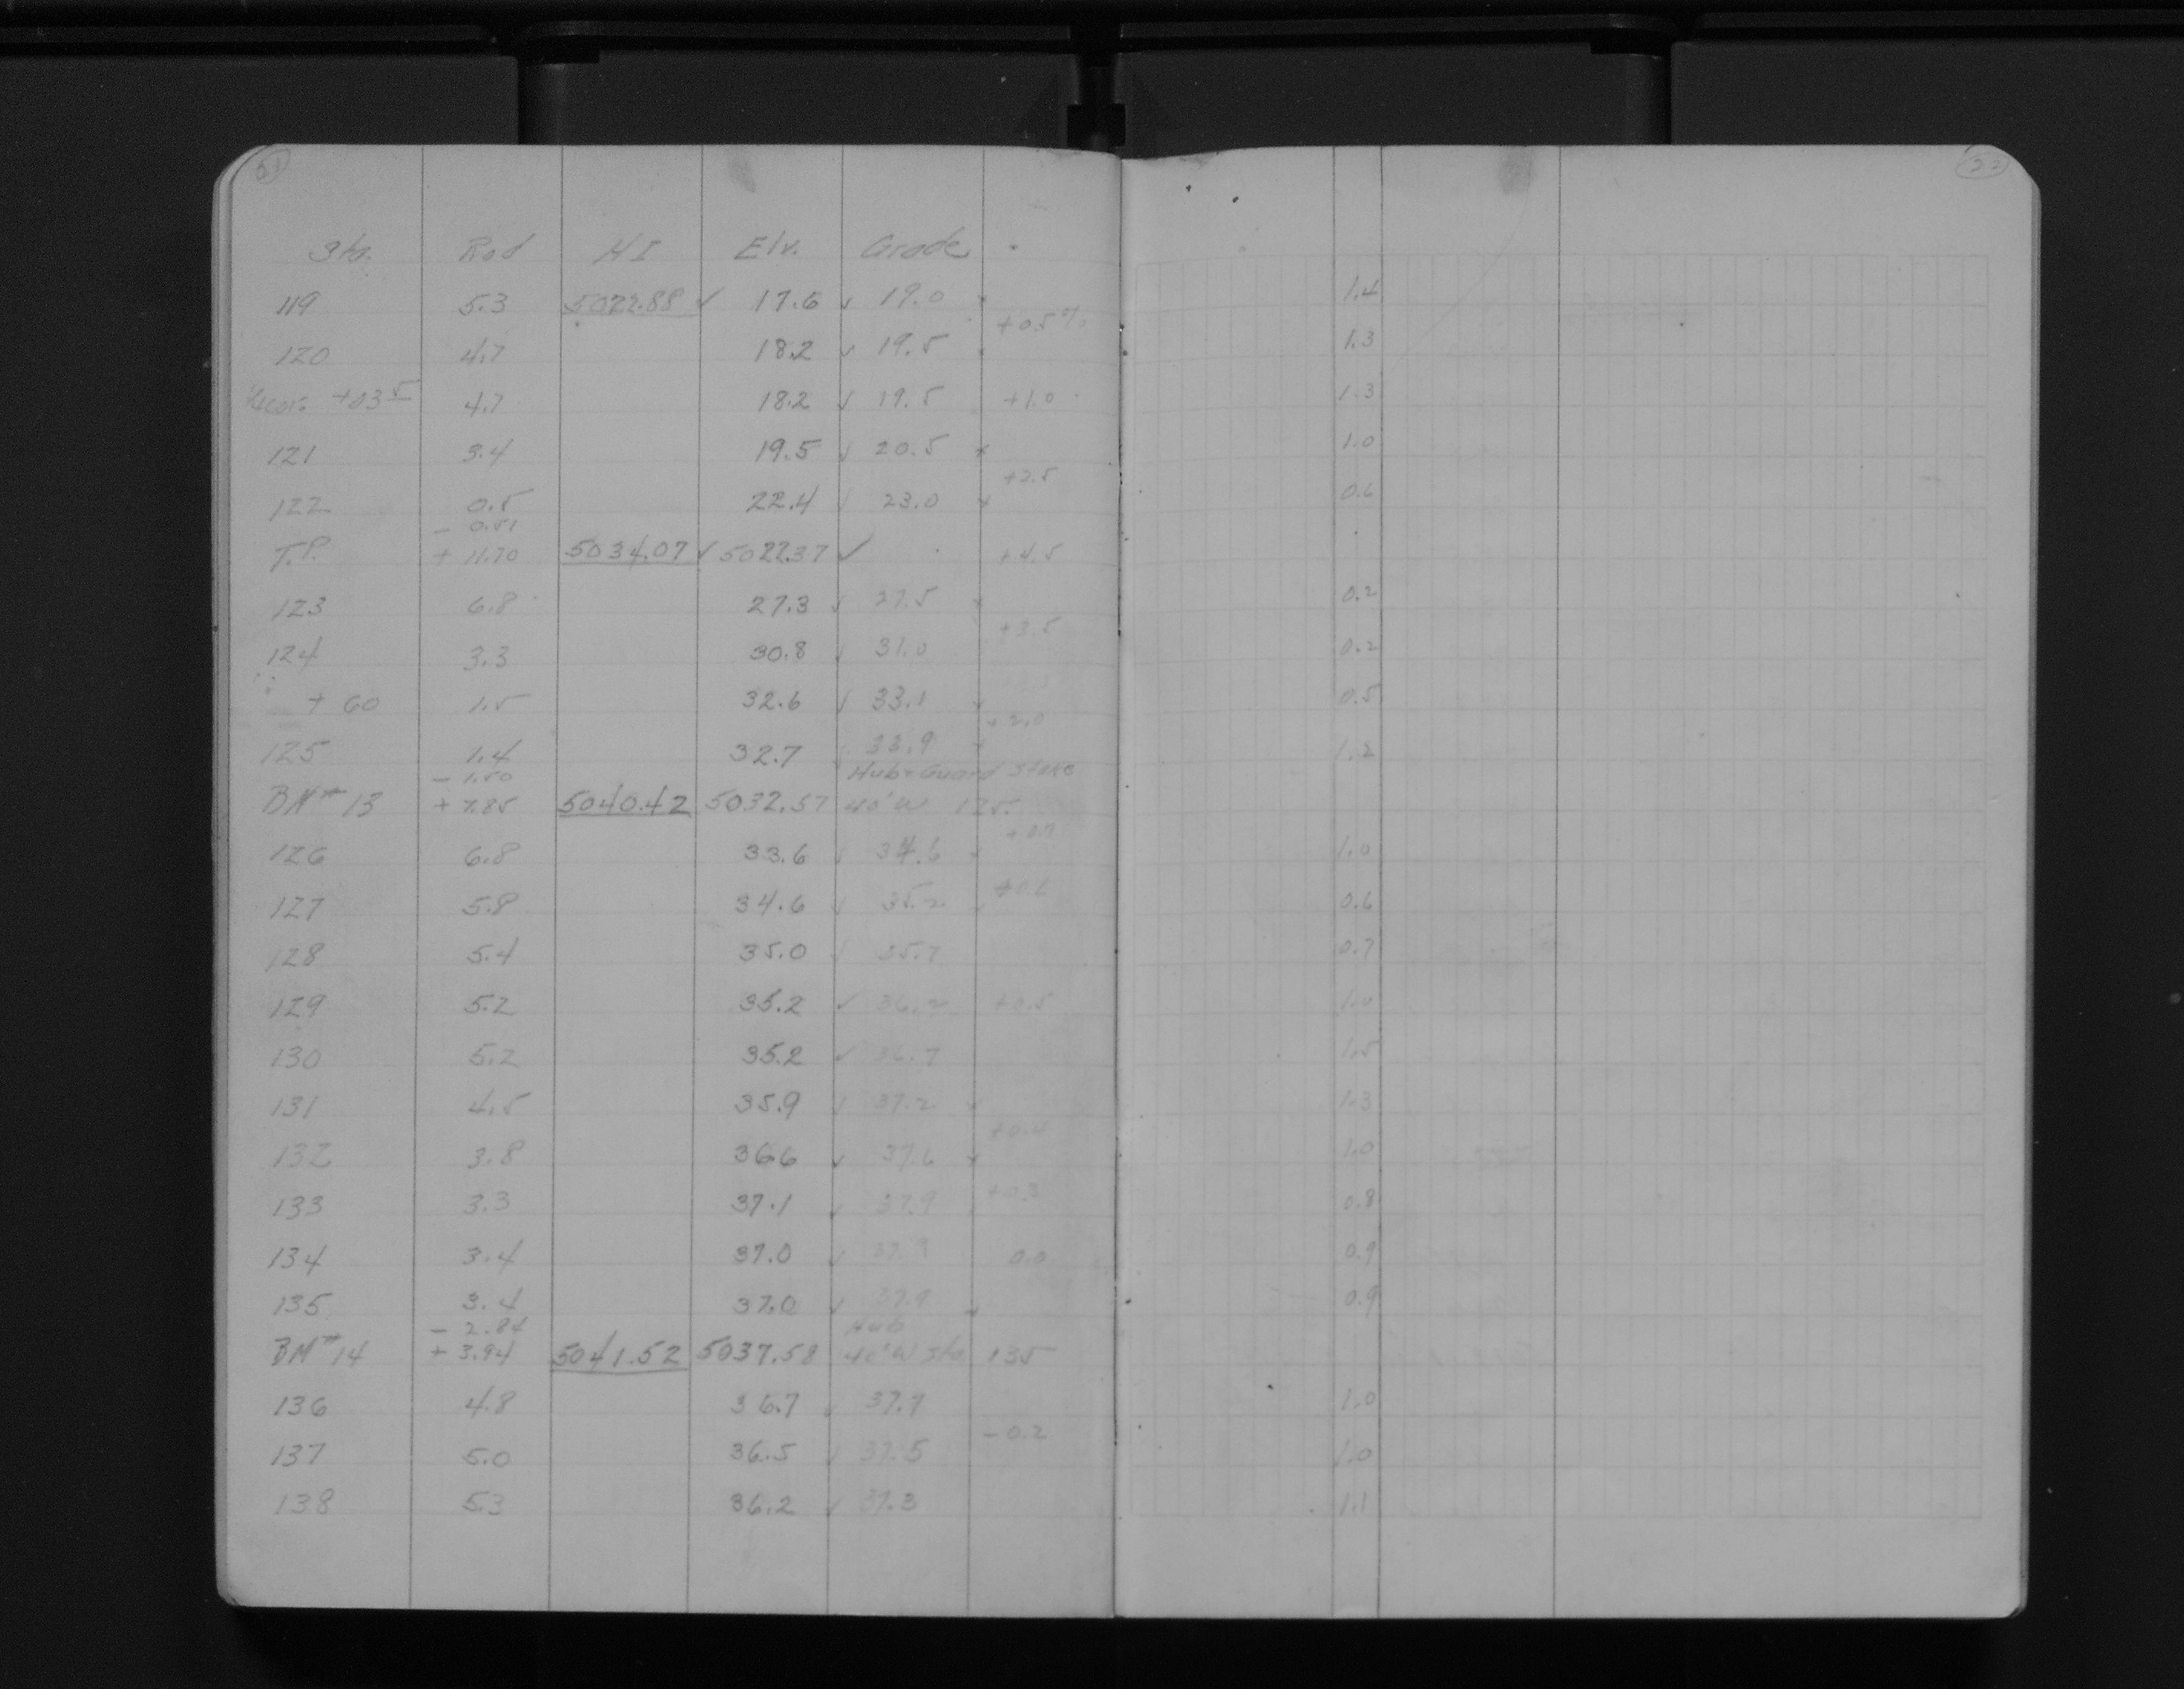 Sta. Rod HI Elv. Grade
119 5.3 5022.88 ✓ 17.6 ✓ 19.0 1.4
+0.5%
120 4.7 18.2 ✓ 19.5 1.3
+035 4.7 18.2 ✓ 19.5 +1.0 1.3
121 3.4 19.5 ✓ 20.5 1.0
+2.5
122 0.5 22.4 ✓ 23.0 0.6
- 0.51
T.P. + 11.70 5034.07 ✓ 5022.37 ✓ +4.5
123 6.8 27.3 ✓ 27.5 0.2
+3.5
124 3.3 30.8 ✓ 31.0 0.2
+ 60 1.5 32.6 ✓ 33.1 0.5
+2.0
125 1.4 32.7 33.9 1.2
- 1.50 Hub + Guard Stake
BM# 13 + 7.85 5040.42 5032.57 40' W 125
+0.7
126 6.8 33.6 ✓ 34.6 1.0
+0.6
127 5.8 34.6 ✓ 35.2 0.6
128 5.4 35.0 ✓ 35.7 0.7
129 5.2 35.2 ✓ 36.2 +0.5 1.0
130 5.2 35.2 ✓ 36.7 1.5
131 4.5 35.9 ✓ 37.2 1.3
+0.4
132 3.8 36.6 ✓ 37.6 1.0
+0.3
133 3.3 37.1 ✓ 37.9 0.8
134 3.4 37.0 ✓ 37.9 0.0 0.9
135 3.4 37.0 ✓ 37.9 0.9
- 2.84 Hub
BM# 14 + 3.94 5041.52 5037.58 40' W Sta 135
136 4.8 36.7 ✓ 37.7 1.0
-0.2
137 5.0 36.5 ✓ 37.5 1.0
138 5.3 36.2 ✓ 37.3 1.1